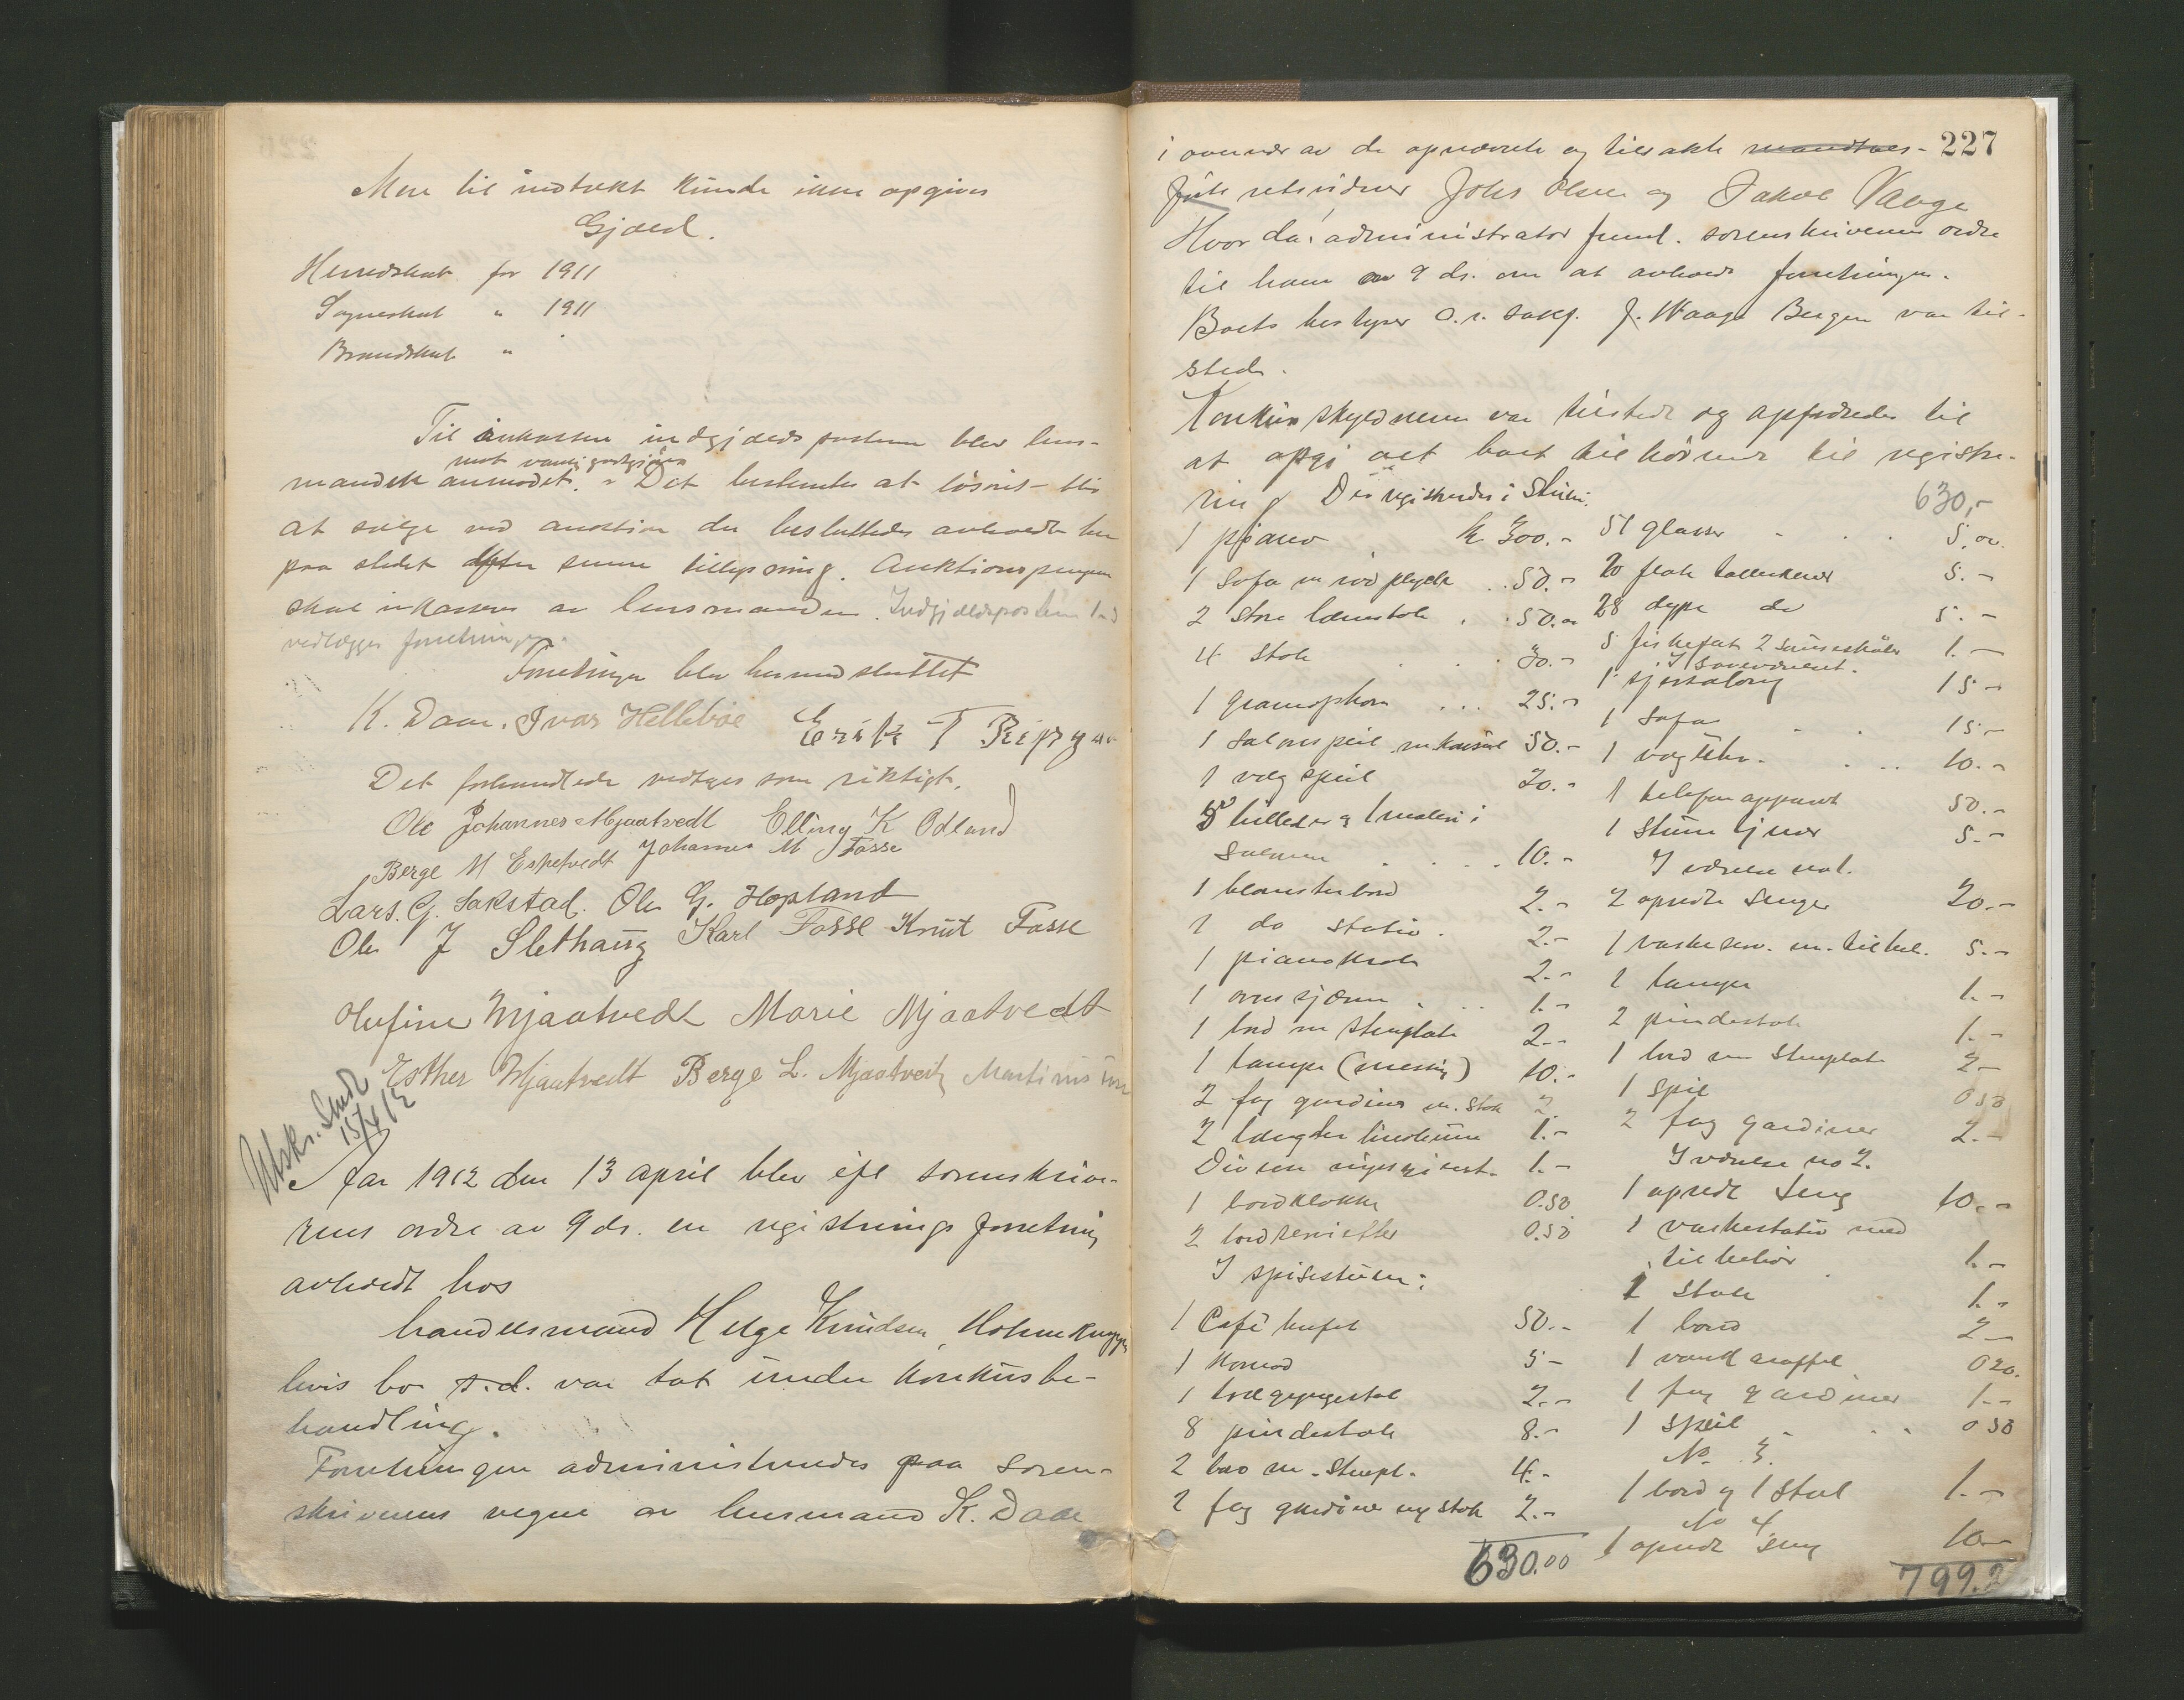 Mere til indtækt kunde ikke opgives
Gjæld.
Herredskat for 1911
Sogneskat " 1911
Brandskat "
Til inkassen indgjældsposterne blev lens-
mot vanlig godtgjørelse
manden anmodet. - Det bestemtes at løsøret blir
at sælge ved auktion der besluttedes avholdt her
paa stedet efter senere tillysning. Auktionspengene
skal inkasseres av lensmanden. Indgjældsposterne
vedlægges forretningen.
Forretningen blev hermed sluttet
K. Daae. Ivar Hellebøe Erik T
Det forhandlede vedtages som riktigt.
Ole Johannes Mjaatvedt Elling K Odland
Berge M Espetvedt Johannes M Fosse
Lars. G. Sakstad. Ole G. Hopland
Ole J Slethaug Karl Fosse Knut Fosse
Olufine Mjaatvedt Marie Mjaatvedt
Esther Mjaatvedt Berge L. Mjaatveit Martinius
Utskr. Sendt
15/4 12
Aar 1912 den 13 april blev efter sorenskrive-
rens ordre av 9 ds. en registrerings forretning
avholdt hos
handelsmand Helge Knudsen, Holmeknappen
hvis bo s.d. var tat under konkursbe-
handling.
Forretningen administreredes paa soren-
skriverens vegne av lensmand K. Daae
227
i overvær av de opnævnte og tilsakte mandtals-
førte retsvidner Johs Olsen og Jakob Vaage
Hvor da: administrator freml. sorenskriverens ordre
til ham av 9 ds. om at avholde forretningen.
Boets bestyrer o.r. sakf. J. Waage Bergen var til-
stede.
Konkursskyldneren var tilstede og opfordredes til
at opgi alt boet tilhørende til registre-
ring Der registreredes i Stuen.
1 piano kr 300.-
1 Sofa m rød plysch 50.-
2 Store lænestole 50.-
4 Stole 30.-
1 gramophon 25.-
1 Salonspeil m. konsol 50.-
1 vægspeil 20.-
billeder og 1 maleri i
Salonen 10.-
1 blomsterbord 2.-
1 do stativ 2.-
1 pianokrak 2.-
1 ovnsjærm 1.-
1 bord m stenplate 2.-
1 lampe (messing) 10.-
2 fag gardiner m. stok 2.
2 længder linoleum 1.-
Diverse nipsgjenst. 1.-
1 bordklokke 0.50
2 bordservietter 0.50
I spisestuen:
1 Café bufet 50.-
1 Komod 5-
1 lvel gyngestol 2.-
8 pindestole 8.-
2 bord m. Stenpl. 4.-
2 fag gardiner og stok 2.-
630.00
630,-
51 glasser 5.00
20 flate tallerkener 5.-
28 dype do 5.-
5 fiskefat 2 sauseskåler 1.-
I Soveværelset.
1 sjeselong 15-
1 Sofa 15-
1 væguhr 10.-
1 telefonapparat 50.-
1 Stumtjener 5.-
I værelse no 1.
2 opredte Senger 20.-
1 vaskeserv. m. tilbeh. 5.-
1 lampe 1.-
2 pindestole 1.-
1 bord m Stenplate 2-
1 speil 0 50
2 fag gardiner 2.-
I værelse no 2.
1 opredt Seng 10.-
1 vaskestativ med
tilbehør 1.-
1 Stole 1.-
1 bord 2-
1 vandkaraffel 0 20.
1 fag gardiner 1.-
1 Speil 0 50
No. 3.
1 bord og 1 Stol 1.-
No 4.
1 opredt Seng 10-
799.2